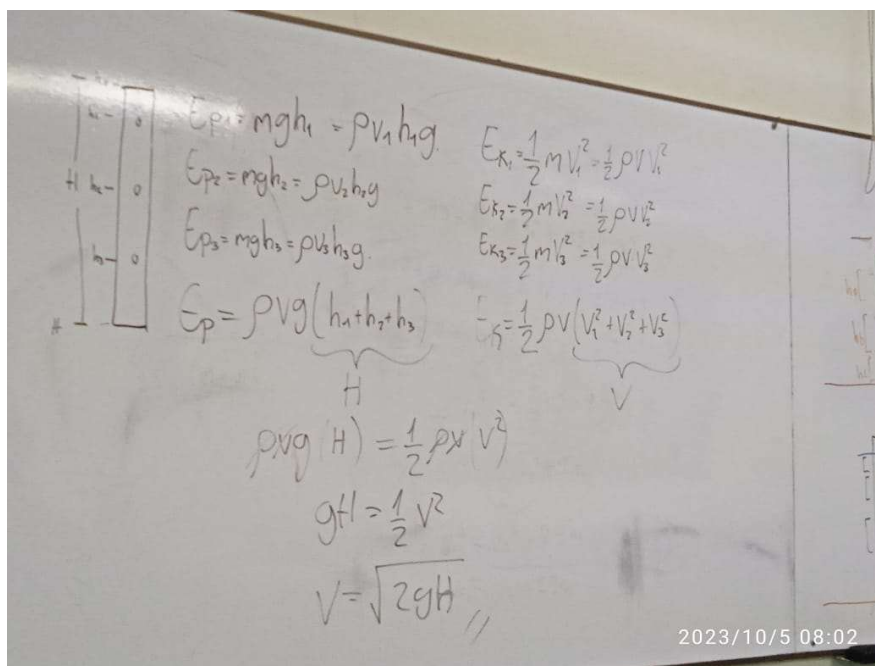 h₁
H h₂
h₃
H
Ep₁ = mgh₁ = ρv₁h₁g
Ep₂ = mgh₂ = ρv₂h₂g
Ep₃ = mgh₃ = ρv₃h₃g.
Ep = ρvg(h₁+h₂+h₃)
H
Eₖ₁ = 1/2 mV₁² = 1/2 ρV V₁²
Eₖ₂ = 1/2 mV₂² = 1/2 ρV V₂²
Eₖ₃ = 1/2 mV₃² = 1/2 ρV V₃²
Eₖ = 1/2 ρV(V₁²+V₂²+V₃²)
V
ρvg(H) = 1/2 ρv(V²)
gH = 1/2 V²
V = √2gH //
2023/10/5 08:02